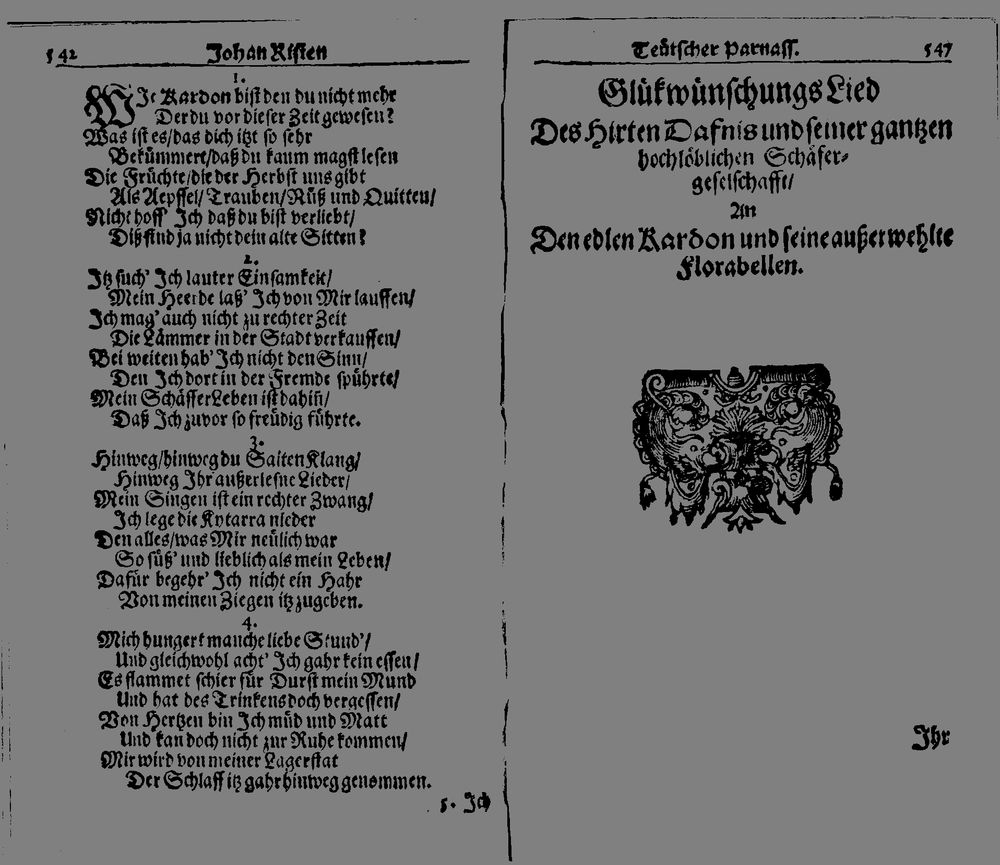 542 Johan Risten
1.
WIe Kardon bist den du nicht mehr
Der du vor dieser Zeit gewesen?
Was ist es/das dich itzt so sehr
Bekümmert/daß du kaum magst lesen
Die Früchte/die der Herbst uns gibt
Als Aepffel/Trauben/Nüß und Quitten/
Nicht hoff' Ich daß du bist verliebt/
Diß sind ja nicht dein alte Sitten?
2.
Itz such' Ich lauter Einsamkeit/
Mein Heerde laß' Ich von Mir lauffen/
Ich mag' auch nicht zu rechter Zeit
Die Lämmer in der Stadt verkauffen/
Bei weiten hab' Ich nicht den Sinn/
Den Ich dort in der Fremde spührte/
Mein SchäfferLeben ist dahin/
Daß Ich zuvor so freüdig führte.
3.
Hinweg/hinweg du Saiten Klang/
Hinweg Ihr außerlesne Lieder/
Mein Singen ist ein rechter Zwang/
Ich lege die Kytarra nieder
Den alles/was Mir neülich war
So süß' und lieblich als mein Leben/
Dafür begehr' Ich nicht ein Hahr
Von meinen Ziegen itz zugeben.
4.
Mich hungert manche liebe Stund'/
Und gleichwohl acht' Ich gahr kein essen/
Es flammet schier für Durst mein Mund
Und hat des Trinkens doch vergessen/
Von Hertzen bin Ich müd und Matt
Und kan doch nicht zur Ruhe kommen/
Mir wird von meiner Lagerstat
Der Schlaff itz gahr hinweg genommen.
5. Ich
Teütscher Parnass. 547
Glükwünschungs Lied
Des Hirten Dafnis und seiner gantzen
hochlöblichen Schäfer-
geselschafft/
An
Den edlen Kardon und seine außerwehlte
Florabellen.
Ihr